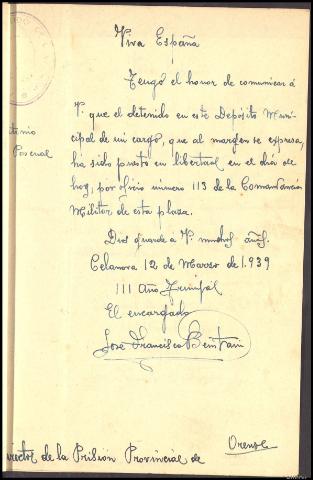 Viva España
Tengo el honor de comunicar á
V. que el detenido en este Depósito Muni-
cipal de mi cargo, que al margen se expresa,
ha sido puesto en libertad en el dia de
hoy, por oficio número 113 de la Comandancia
Militar de esta plaza.
Dios guarde a V. muchos años.
Celanova 12 de Marzo de 1.939
III Año Triunfal
El encargado
José Francisco
Pascual
Director de la Prisión Provincial de
Orense